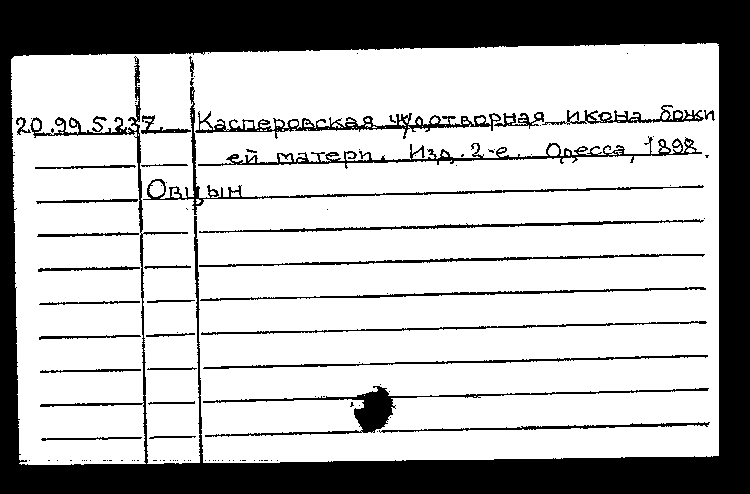 20.99.5.237. Касперовская чудотворная икона божи
ей матери. Изд. 2-е. Одесса, 1898.
Овцын